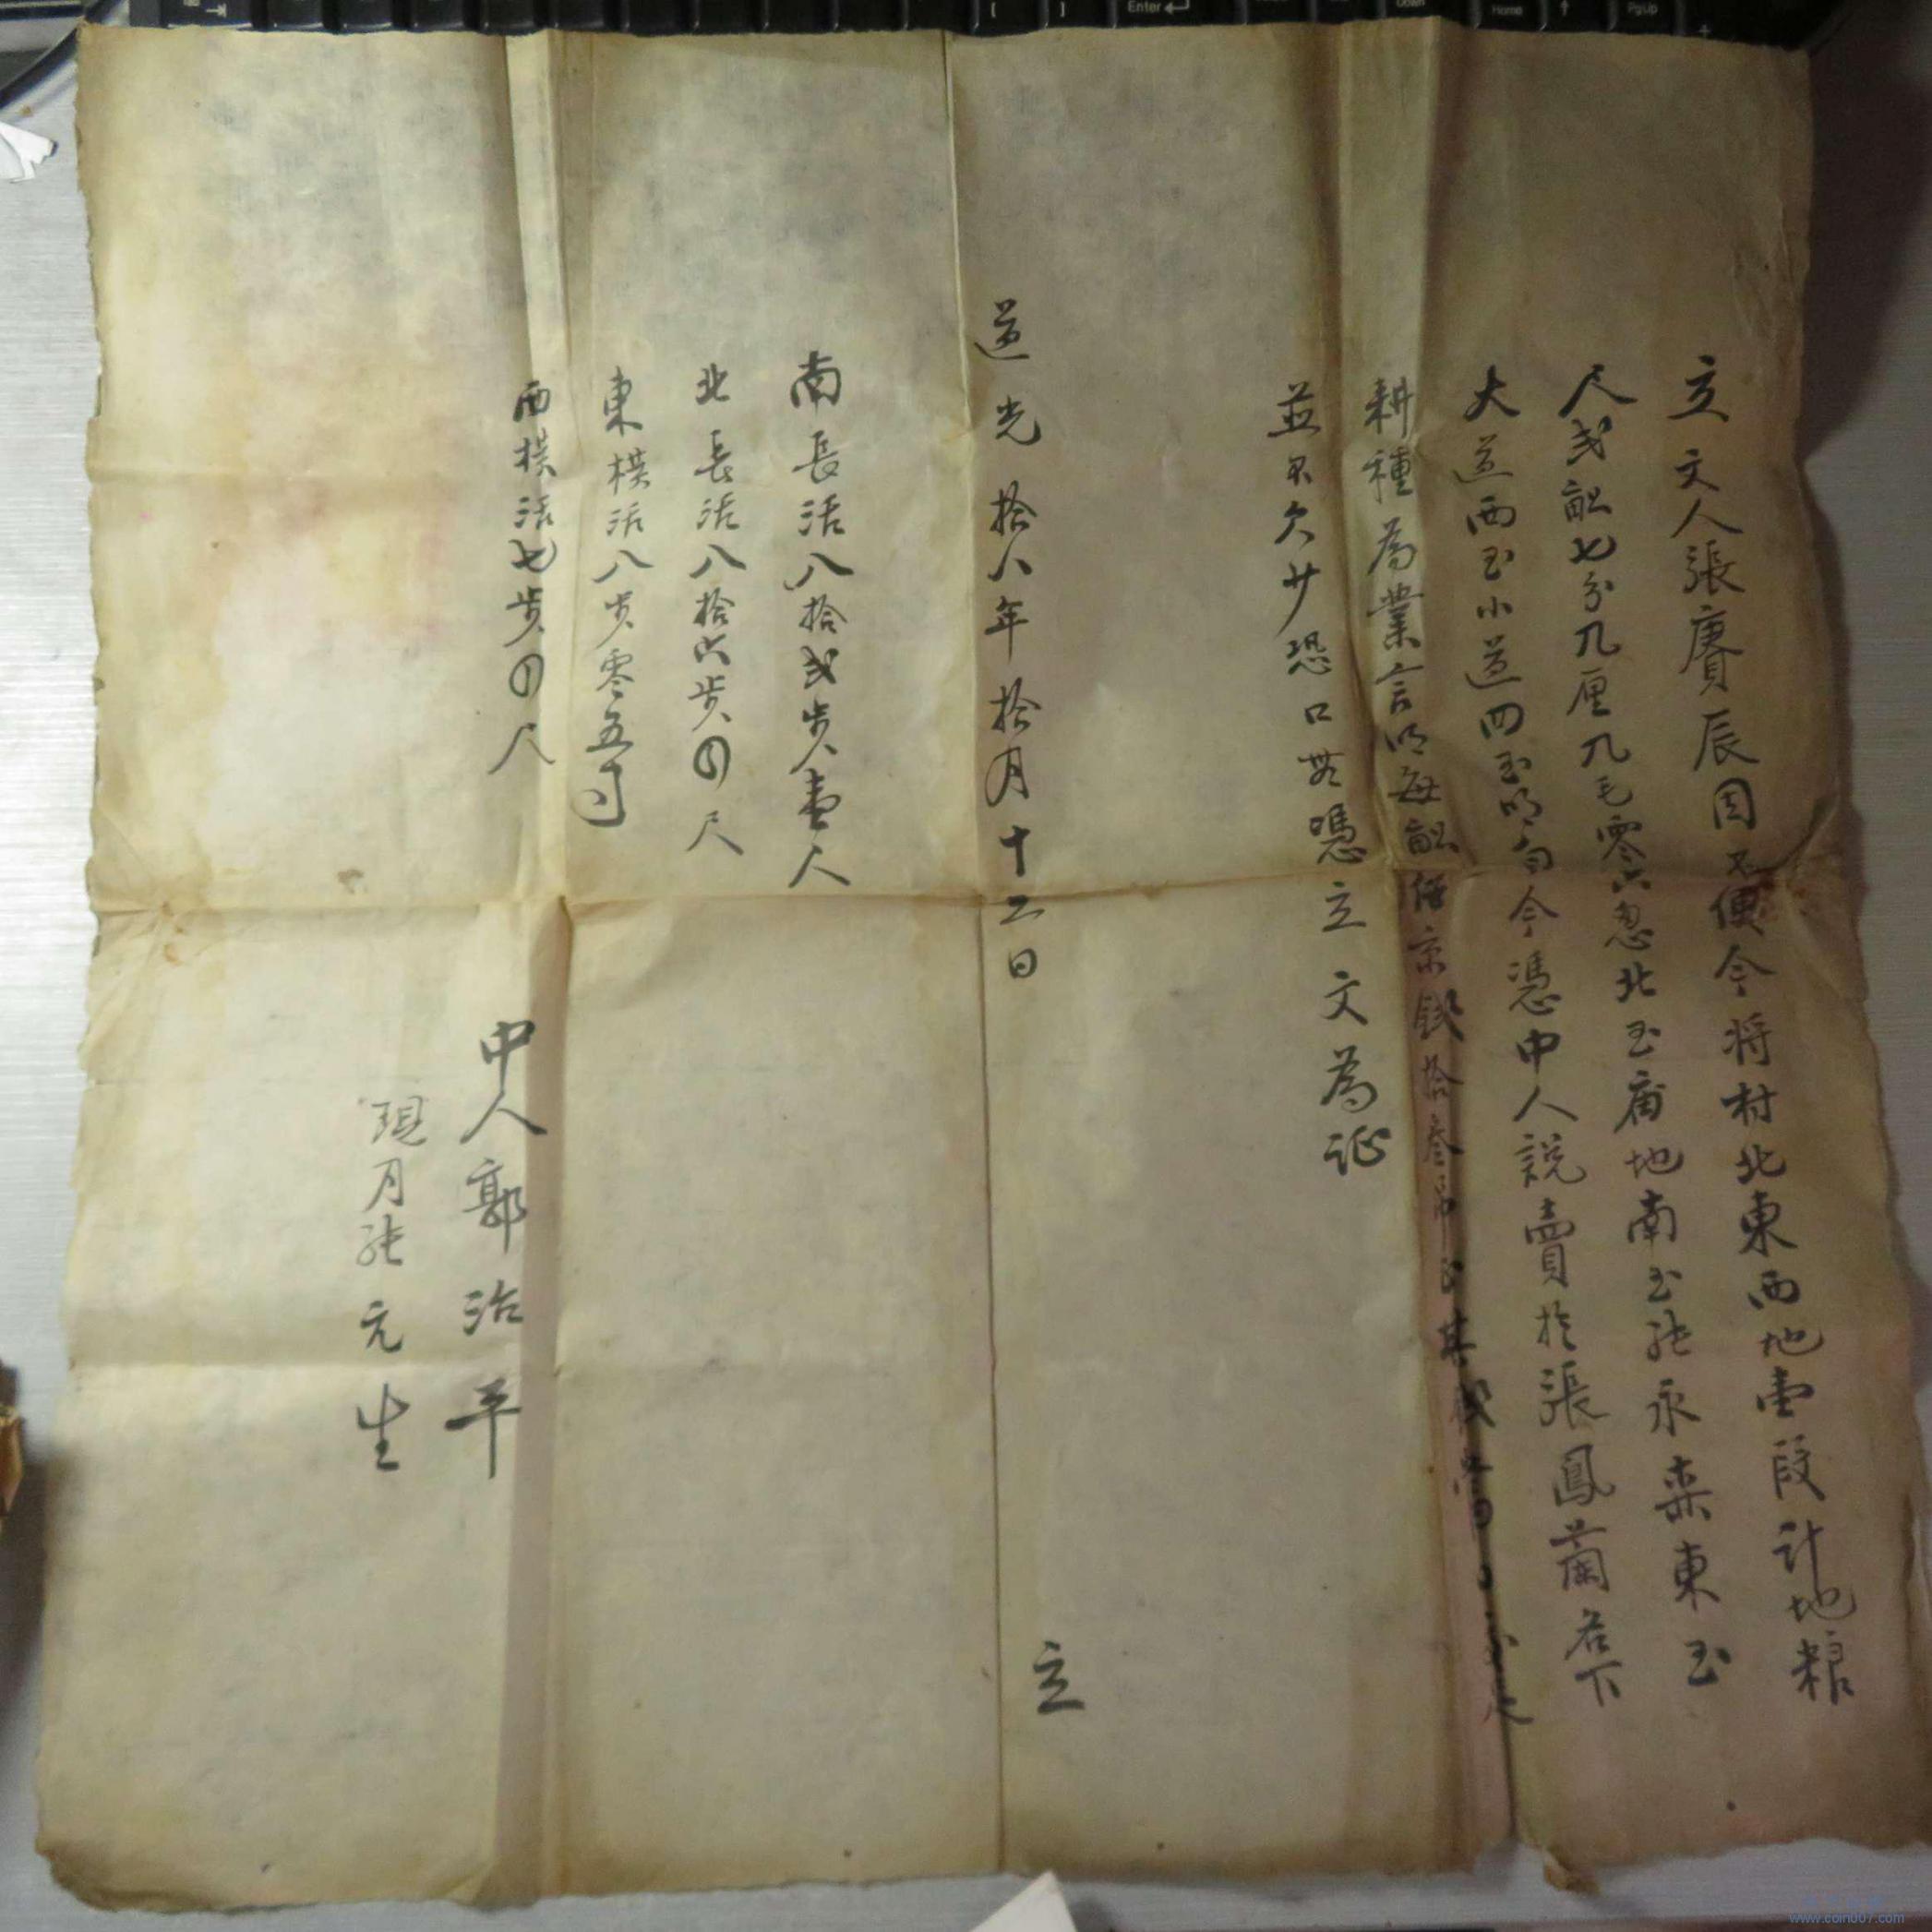 立文人張賡辰因不便今将村北東西地壹段計地粮
尺弍畝七分九厘九毛零六忽北至廟地南至張永桒東至
大道西至小道四至明白今憑中人説賣於張鳳蘭名下
耕種為業言明每畝價京錢拾叁吊正其錢當日交足
並不欠少恐口無憑立文為証
道光拾八年拾月十二日 立
南長活八拾弍步壹尺
北長活八拾六步四尺
東横活八步零五寸
西横活七步四尺
中人郭治平
張元生
Enter
Home
PgUp
Down
[
]
www.coin007.com